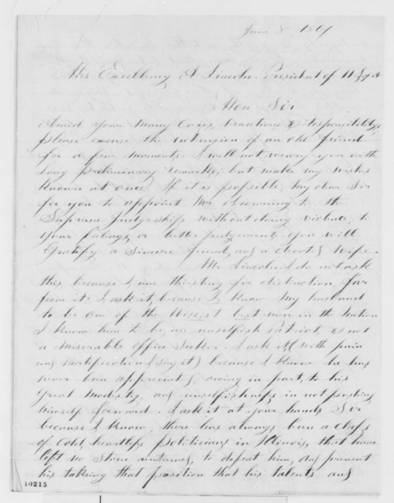 June 8 1861
His Excellency A Lincoln President of U S A
Hon Sir
Amid your many cares, vexations & responsibilitys
please excuse the intrusion of an old friend
for a few moments. I will not weary you with
long preliminary remarks, but make my wishes
known at once. If it is possible, my dear Sir
for you to appoint Mr Browning to the
Supreme Judgeship without doing violence to
your feelings, or better judgement, you will
gratify a sincere friend, and a devoted wife.
Mr Lincoln I do not ask
this because I am thirsting for distinction far
from it. I ask it, because I know my husband
to be one of the wisest best men in the nation
I know him to be, an unselfish patriot, & not
a miserable office seeker. I ask it (with pain
and mortification I say it) because I know he has
never been appreciated, owing in part, to his
great modesty, and unselfishness in not pushing
himself forward. I ask it at your hands Sir
because I know, there has always been a
of cold, heartless politicians in Illinois, that have
left no stone unturned, to defeat him, and prevent
his taking that position that his talents, and
10215